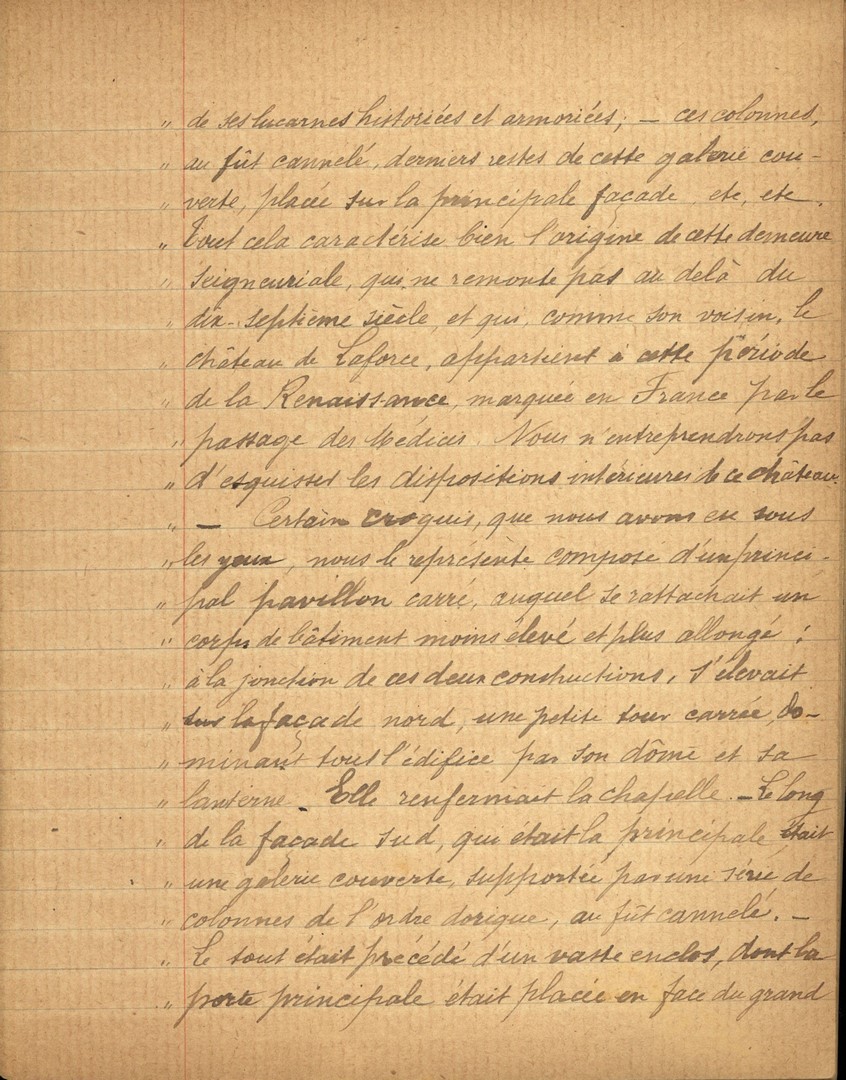 „ de ses lucarnes historiées et armoriées; — ces colonnes,
„ au fût cannelé, derniers restes de cette galerie cou-
„ verte, placée sur la principale façade, etc, etc.
„ Tout cela caractérise bien l'origine de cette demeure
„ seigneuriale, qui ne remonte pas au delà du
„ dix-septième siècle, et qui, comme son voisin, le
„ château de Laforce, appartient à cette période
„ de la Renaissance, marquée en France par le
„ passage des Médicis. Nous n'entreprendrons pas
„ d'esquisser les dispositions intérieures de ce château.
„ — Certain croquis, que nous avons eu sous
„ les yeux, nous le représente compose d'un princi-
„ pal pavillon carré, auquel se rattachait un
„ corps de bâtiment moins élevé et plus allongé ;
„ à la jonction de ces deux constructions, s'élevait
„ sur la façade nord, une petite tour carrée, do-
„ minant tout l'édifice par son dôme et sa
„ lanterne. Elle renfermait la chapelle. — Le long
„ de la façade sud, qui était la principale était
„ une galerie couverte, supportée par une série de
„ colonnes de l'ordre dorique, au fût cannelé. —
„ Le tout était précédé d'un vaste enclos, dont la
„ porte principale était placée en face du grand